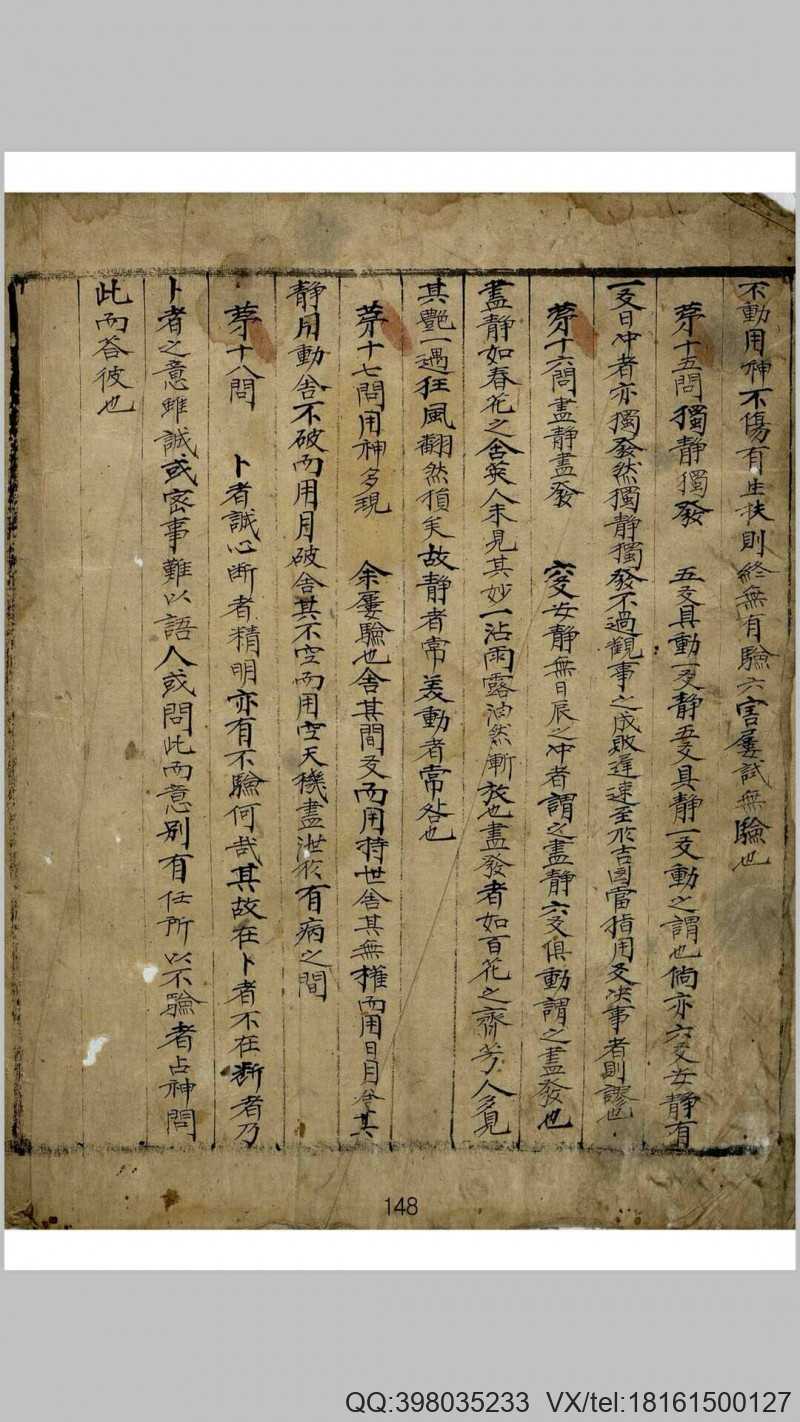 不動用神不傷有生扶則終無有驗六害屢試無驗也
苐十五問獨静獨發 五爻具動一爻静五爻具静一爻動之謂也倘亦六爻安静有
一爻日冲者亦獨發然獨静獨發不過觀事之成敗遲速至於吉凶當指用爻决事者則謬也
苐十六問盡静盡發 六爻安静無日辰之冲者謂之盡静六爻俱動謂之盡發也
盡静如春花之含英人未見其妙一沾雨露油然漸放也盡發者如百花之齊芳人多見
其艷一遇狂風翻然損矣故静者常美動者常咎也
苐十七問用神多現 余屢驗也舍其閒爻而用持世舍其無權而用日月舍其
静用動舍不破而用月破舍其不空而用空天機盡泄於有病之間
苐十八問 卜者誠心断者精明亦有不驗何哉其故在卜者不在断者乃
卜者之意雖誠或密事難以語人或問此而意别有任所以不驗者占神問
此而答彼也
148
QQ:398035233 VX/tel:18161500127